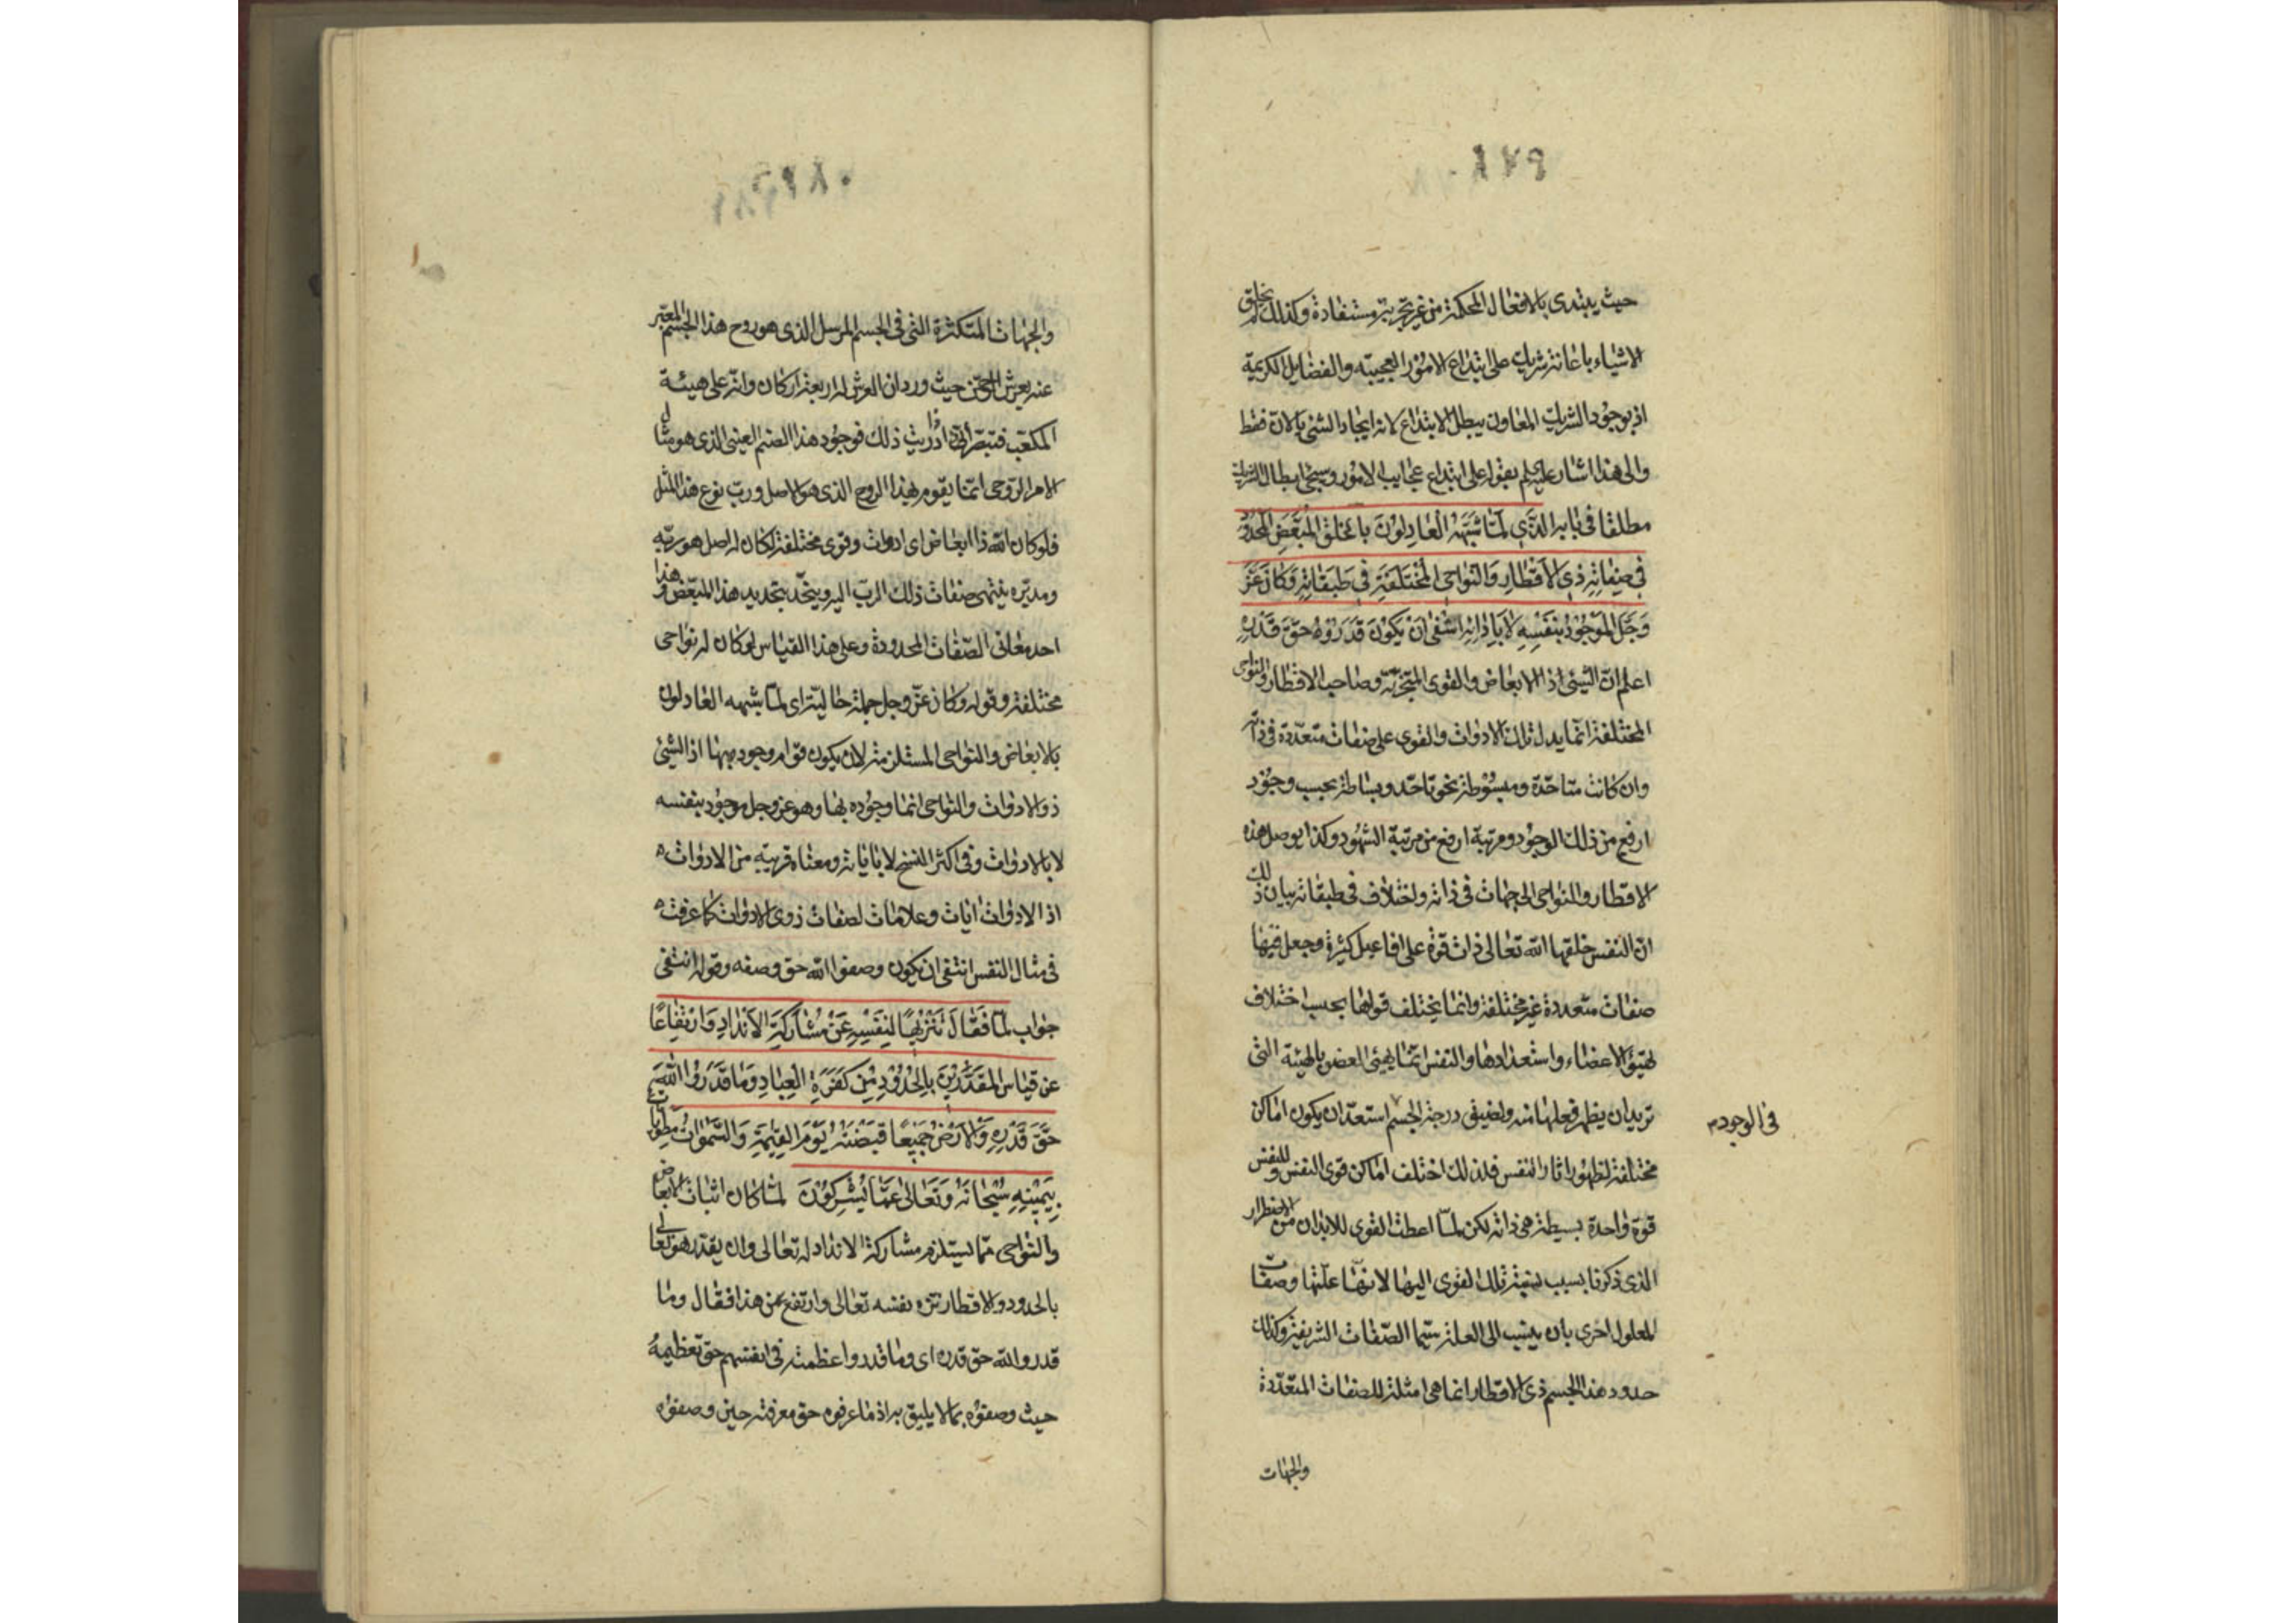 حيث يبتدى بالافعال المحكمة من غير تجربة مستفادة وكذلك لم يخلق
الاشياء باعانة شريك على ابتداع الامور العجيبة والفضايل الكريمة
اذ بوجود الشريك المعاون يبطل الابتداع لانه ايجاد الشئ بالان فقط
والى هذا اشار عليه السلم بقوله على ابتداع عجايب الامور وسيجئ ابطال الشريك
مطلقا في بابه الَّذي لَمَّا شَبَّهَهُ الْعَادِلُونَ بالخلق المُبَعَّضِ المَحْدُودِ
في صِفَاتِهِ ذِي الأَقْطَارِ وَالنَّوَاحِي المُخْتَلِفَةِ فِي طَبَقَاتِهِ وَكَانَ عَزَّ
وَجَلَّ المَوْجُودُ بِنَفْسِهِ لا بِأَدَاتِهِ انْتَفى اَنْ يَكُونَ قَدَرُوهُ حَقَّ قَدْرِهِ
اعلم ان الشئ اذ الابعاض والقوى المتجزية وصاحب الاقطار والنواحى
المختلفة انما يدل تلك الادوات والقوى على صفات متعددة في ذاته
وان كانت متاحدة ومبسوطة نحو تاحد وبساطة بحسب وجود
ارفع من ذلك الوجود ومرتبة ارفع من مرتبة الشهود وكذا يوصل هذه
الاقطار والنواحى الى جهات في ذاته واختلاف في طبقاته بيان ذلك
ان النفس خلقها الله تعالى ذات قوة على افاعيل كثيرة وجعل فيها
صفات متعددة غير مختلفة وانما يختلف قواها بحسب اختلاف
تهيؤ الاعضاء واستعدادها والنفس انما يهيئ العضو بالهيئة التى
تريد ان يظهر فعلها منه ولضيق درجة الجسم استعد ان يكون اماكن
في الوجود م
مختلفة لظهور اثار النفس فلذلك اختلف اماكن قوى النفس وللنفس
قوة واحدة بسيطة هى ذاته لكن لما اعطت القوى للابدان من الاضطرار
الذى ذكرنا بسبب نسبة تلك القوى اليها لانها علتها وصفات
المعلول احرى بان ينسب الى العلة سيما الصفات الشريفة وكذلك
حدود هذا الجسم ذى الاقطار انما هى امثلة للصفات المتعددة
والجهات
والجهات المتكثرة التى في الجسم المرسل الذى هو روح هذا الجسم المعبر
عنه بعرش الرحمن حيث ورد ان العرش له اربعة اركان وانه على هيئة
المكعب فتبصر اذا دريت ذلك فوجود هذا الصنم العينى الذى هو مثال
الامر الروحى انما يقوم بهذا الروح الذى هو الاصل ورب نوع هذا المثل
فلو كان الله ذا ابعاض اى ادوات وقوى مختلفة لكان له اصل هو ربه
ومدبره ينتهى صفات ذلك الرب اليه ويتحدد بتحديد هذا المبعض وهذا
احد معانى الصفات المحدودة وعلى هذا القياس لو كان له نواحى
مختلفة وقوله وكان عز وجل جملة حالية اى لما شبهه العادلون
بالابعاض والنواحى المستلزمة لان يكون قوام وجوده بها اذ الشئ
ذو الادوات والنواحى انما وجوده بها وهو عز وجل موجود بنفسه
لا بالادوات وفى اكثر النسخ لا باياته ومعناه قريبة من الادوات
اذ الادوات ايات وعلامات لصفات ذوى الادوات كما عرفت
في مثال النفس انتفى ان يكون وصفوا الله حق وصفه وقوله انتفى
جواب لما فَقَالَ تَنْزِيهًا لِنَفْسِهِ عَنْ مُشَارَكَةِ الأَنْدَادِ وَارْتِفَاعًا
عن قياس المُقَدِّرِينَ بِالْحُدُودِ مِنْ كَفَرَةِ الْعِبَادِ وَمَا قَدَرُوا اللّٰهَ
حَقَّ قَدْرِهِ وَالأَرْضُ جَمِيعًا قَبْضَتُهُ يَوْمَ القِيمَةِ وَالسَّمَوَاتُ مَطْوِيَّاتٌ
بِيَمِينِهِ سُبْحَانَهُ وَتَعَالَى عَمَّا يُشْرِكُونَ لما كان اثبات الابعاض
والنواحى مما يستلزم مشاركة الانداد له تعالى وان يقدر هو تعالى
بالحدود والاقطار نزه نفسه تعالى وارتفع عن هذا فقال وما
قدروا الله حق قدره اى وما قدروا عظمته في انفسهم حق تعظيمه
حيث وصفوه بما لا يليق به اذ ما عرفوه حق معرفته حين وصفوه